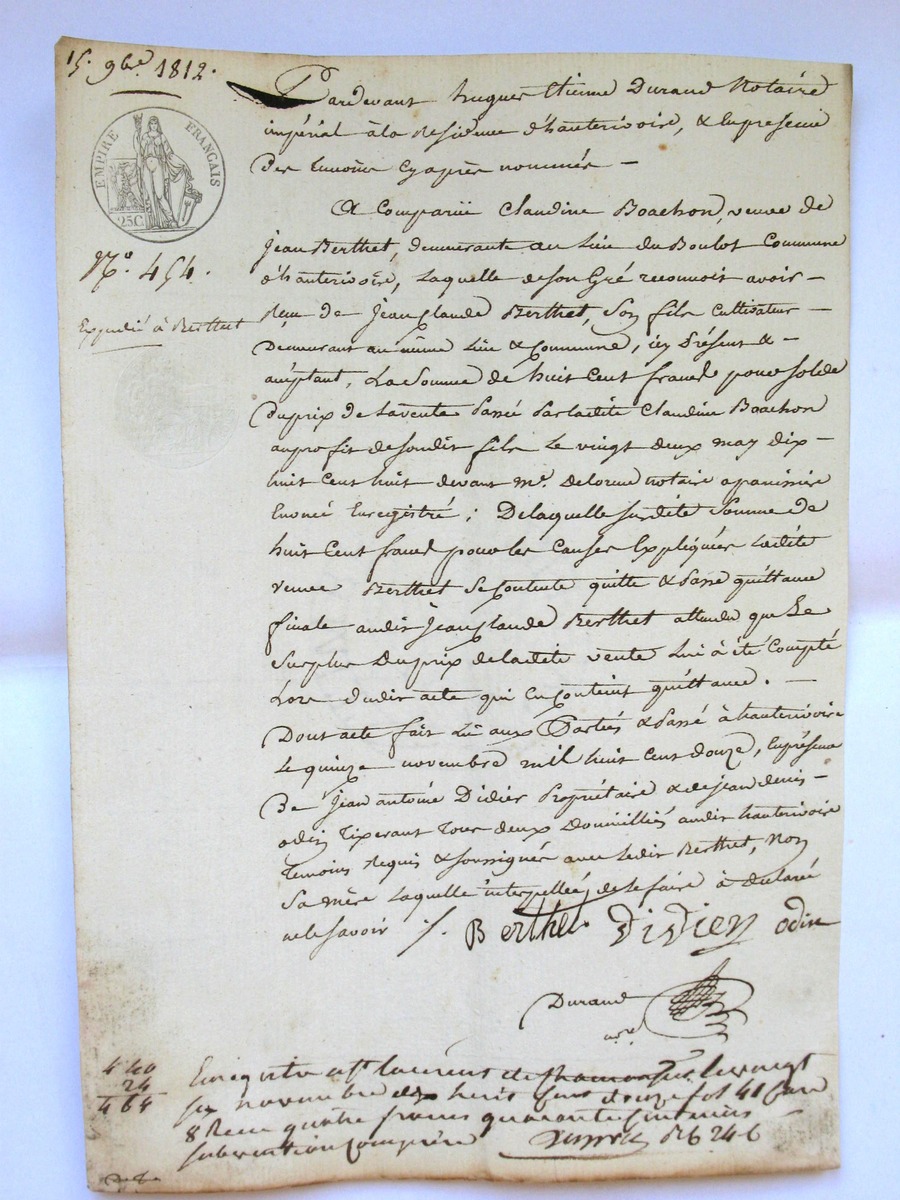 15. 9bre 1812.
EMPIRE FRANÇAIS
25C.
No. 454.
Expedié à Berthet
Pardevant hugues Etienne Durand Notaire
impérial à la Residence d'hauterivoire, & en presence
Des temoins cyaprès nommés —
A Comparüe Claudine Boachon, veuve de
Jean Berthet, demeurante au Lieu du Boulot Commune
d'hauterivoire, Laquelle de son Gré reconnoit avoir —
Reçu de Jean Claude Berthet, Son fils Cultivateur —
Demeurant au même Lieu & Commune, icy Présent & —
acceptant, La Somme de huit Cent francs pour Solde
Du prix de La vente Passé Par ladite Claudine Boachon
au profit de Son dit fils Le vingt deux may dix —
huit Cent huit devant Me. Delorme notaire a panissiere
Enoncé Enregistré ; De laquelle Susdite Somme de
huit Cent francs pour les Causes Expliquées Ladite
veuve Berthet Se Contente quitte & Passe quittance
finale audit Jean Claude Berthet attendu que Le
Surplus Du prix de ladite vente Lui à été Compté
Lors dudit acte qui En Contient quittance. —
Dont acte fait Lû aux Parties & Passé à hauterivoire
Le quinze novembre mil huit Cent douze, En présence
De Jean antoine Didier Propriétaire & de Jean denis —
odin Tixerant Tous deux Domicilliés audit hauterivoire
Temoins Requis & Soussignés avec Ledit Berthet, Non
Sa mère Laquelle interpellée de le faire à Déclaré
ne le Savoir /.
Berthet Didier odin
Durand
nre
4 40
24
4 64
Enregistré a St laurent de Chamousset le vingt
six novembre dix huit cent douze fol 41 Case
8 Recu quatre francs quarante centimes
subvention comprise